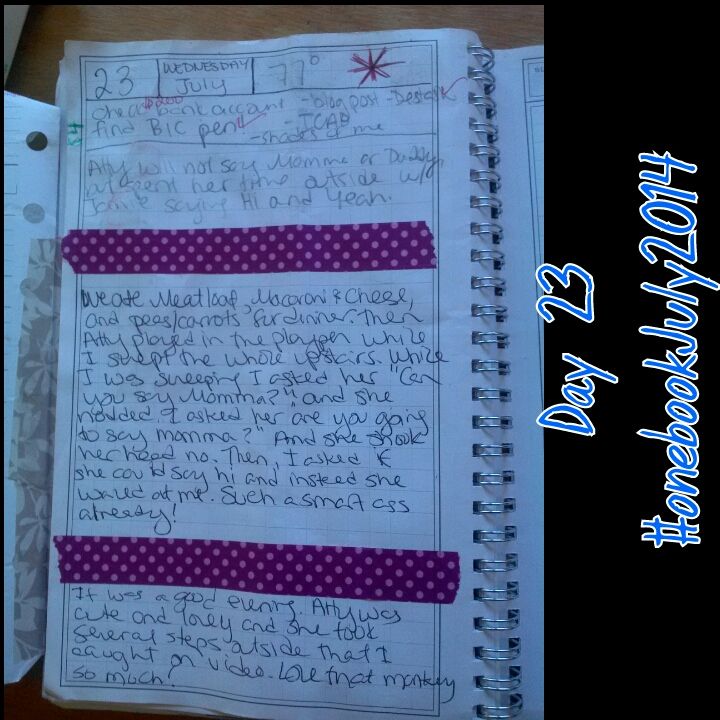 23
WEDNESDAY
July
77°
$200
check bank account - blog post - Destash
find BIC pen - JCAB
- shades of me
Atty will not say Momma or Daddy,
but spent her time outside w/
Jamie saying Hi and Yeah.
We ate Meatloaf, Macaroni & Cheese,
and peas/carrots for dinner. Then
Atty played in the playpen while
I swept the whole upstairs. While
I was sweeping I asked her "Can
you say Momma?" and she
nodded. I asked her "are you going
to say momma?" And she shook
her head no. Then, I asked if
she could say hi and instead she
waved at me. Such a smart ass
already!
It was a good evening. Atty was
cute and lovey and she took
several steps outside that I
caught on video. Love that monkey
so much!
Day 23
#onebookJuly2014